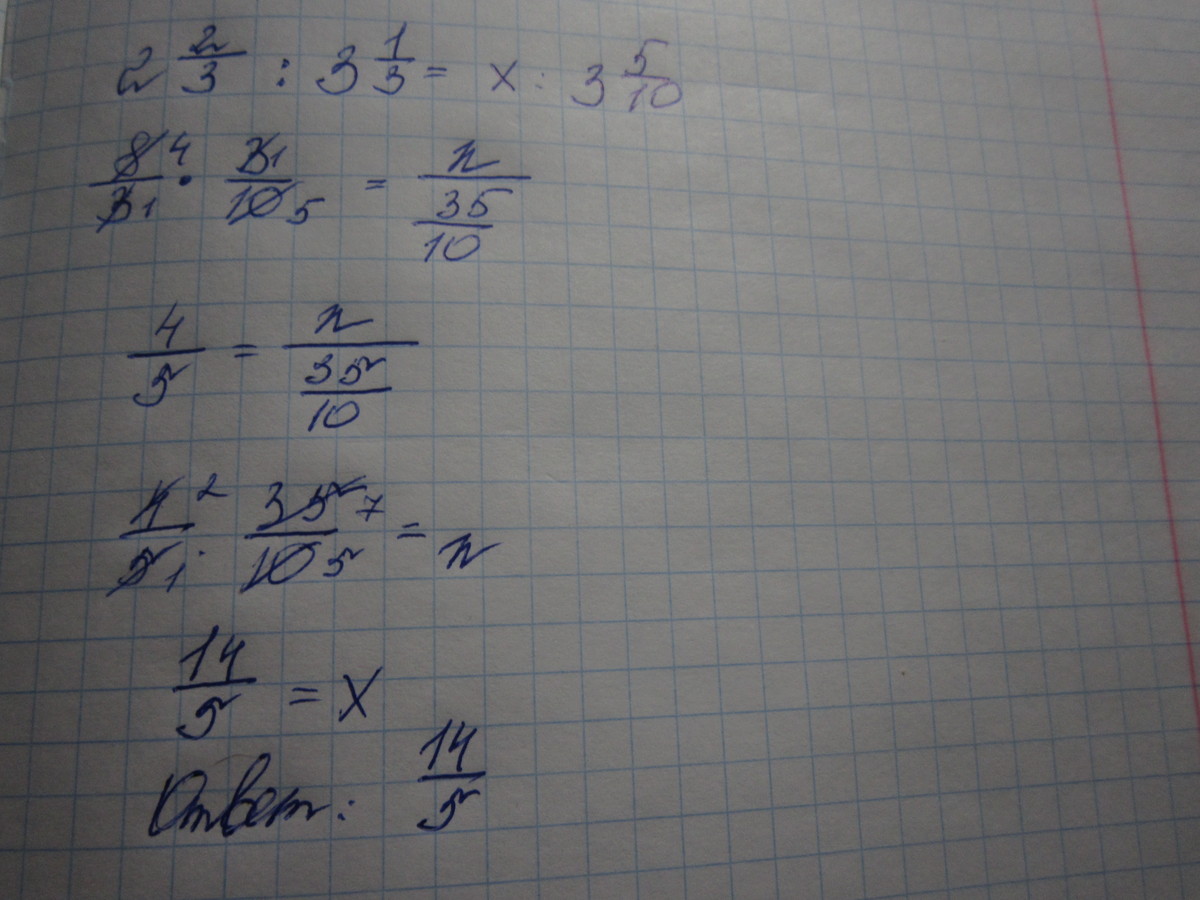 2 2/3 : 3 1/3 = x : 3 5/10
8 4/3 1 · 3 1/10 5 = x/(35/10)
4/5 = x/(35/10)
4 2/5 1 · 35 7/10 5 = x
14/5 = x
Ответ: 14/5